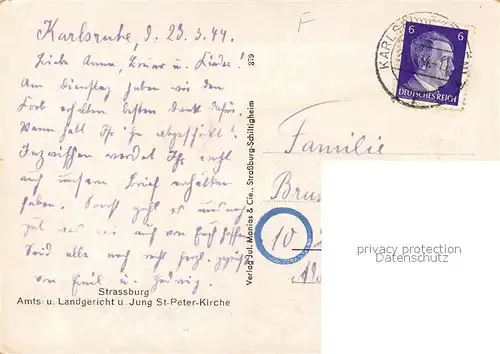 Karlsruhe, d. 23.3.44.
Liebe Anna, Xaver u. Kinder!
Am Dienstag haben wir den
Korb erhalten besten Dank dafür.
Wann habt Ihr ihn abgeschickt!
Inzwischen werdet Ihr wohl
auch unsern Brief erhalten
haben. Sonst geht es uns noch
gut was wir auch von Euch hoffen.
Seid alle noch recht herzl. gegrüßt
von Emil u. Hedwig.
Strassburg
Amts- u. Landgericht u. Jung St-Peter-Kirche
379
Verlag Jul. Manias & Cie., Straßburg-Schiltigheim
F
KARLSRUHE
6 6
DEUTSCHES REICH
Familie
Brus
10
privacy protection
Datenschutz